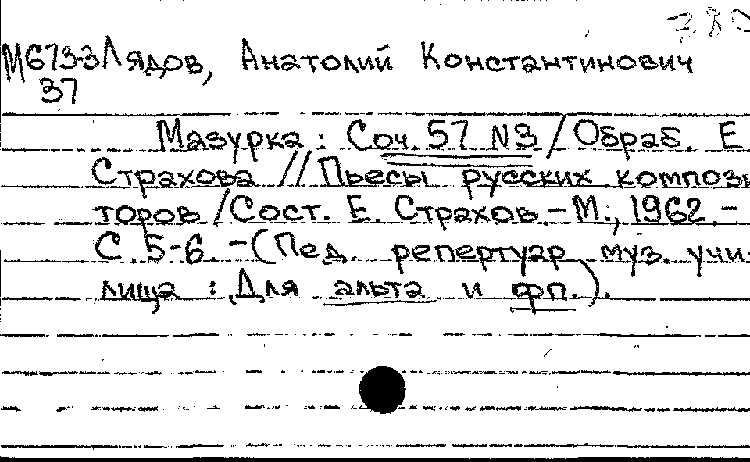 380
М673-3 Лядов, Анатолий Константинович
37
Мазурка : Соч. 57 №3 / Обраб. Е
Страхова // Пьесы русских компози
торов / Сост. Е. Страхов. - М., 1962. -
С. 5-6. - (Пед. репертуар муз. учи-
лища : Для альта и фп.).